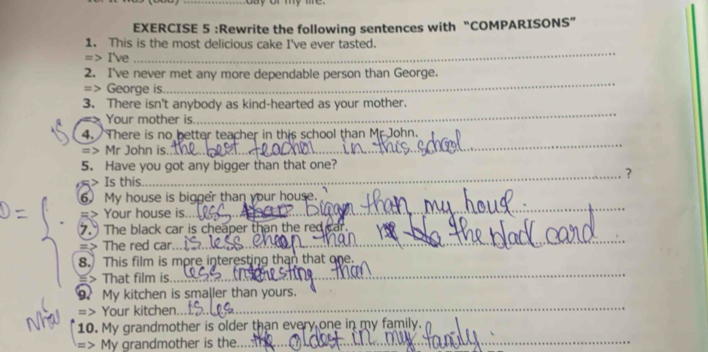 day of my life.
EXERCISE 5 :Rewrite the following sentences with "COMPARISONS"
1. This is the most delicious cake I've ever tasted.
=> I've
2. I've never met any more dependable person than George.
=> George is
3. There isn't anybody as kind-hearted as your mother.
=> Your mother is
4. There is no better teacher in this school than Mr John.
=> Mr John is the best teacher in this school
5. Have you got any bigger than that one?
=> Is this ?
6. My house is bigger than your house.
=> Your house is less bigger than my
7. The black car is cheaper than the red car.
=> The red car is less cheap than the black card
8. This film is more interesting than that one.
=> That film is less interesting than
9. My kitchen is smaller than yours.
=> Your kitchen is les
10. My grandmother is older than every one in my family.
=> My grandmother is the oldest in my family.